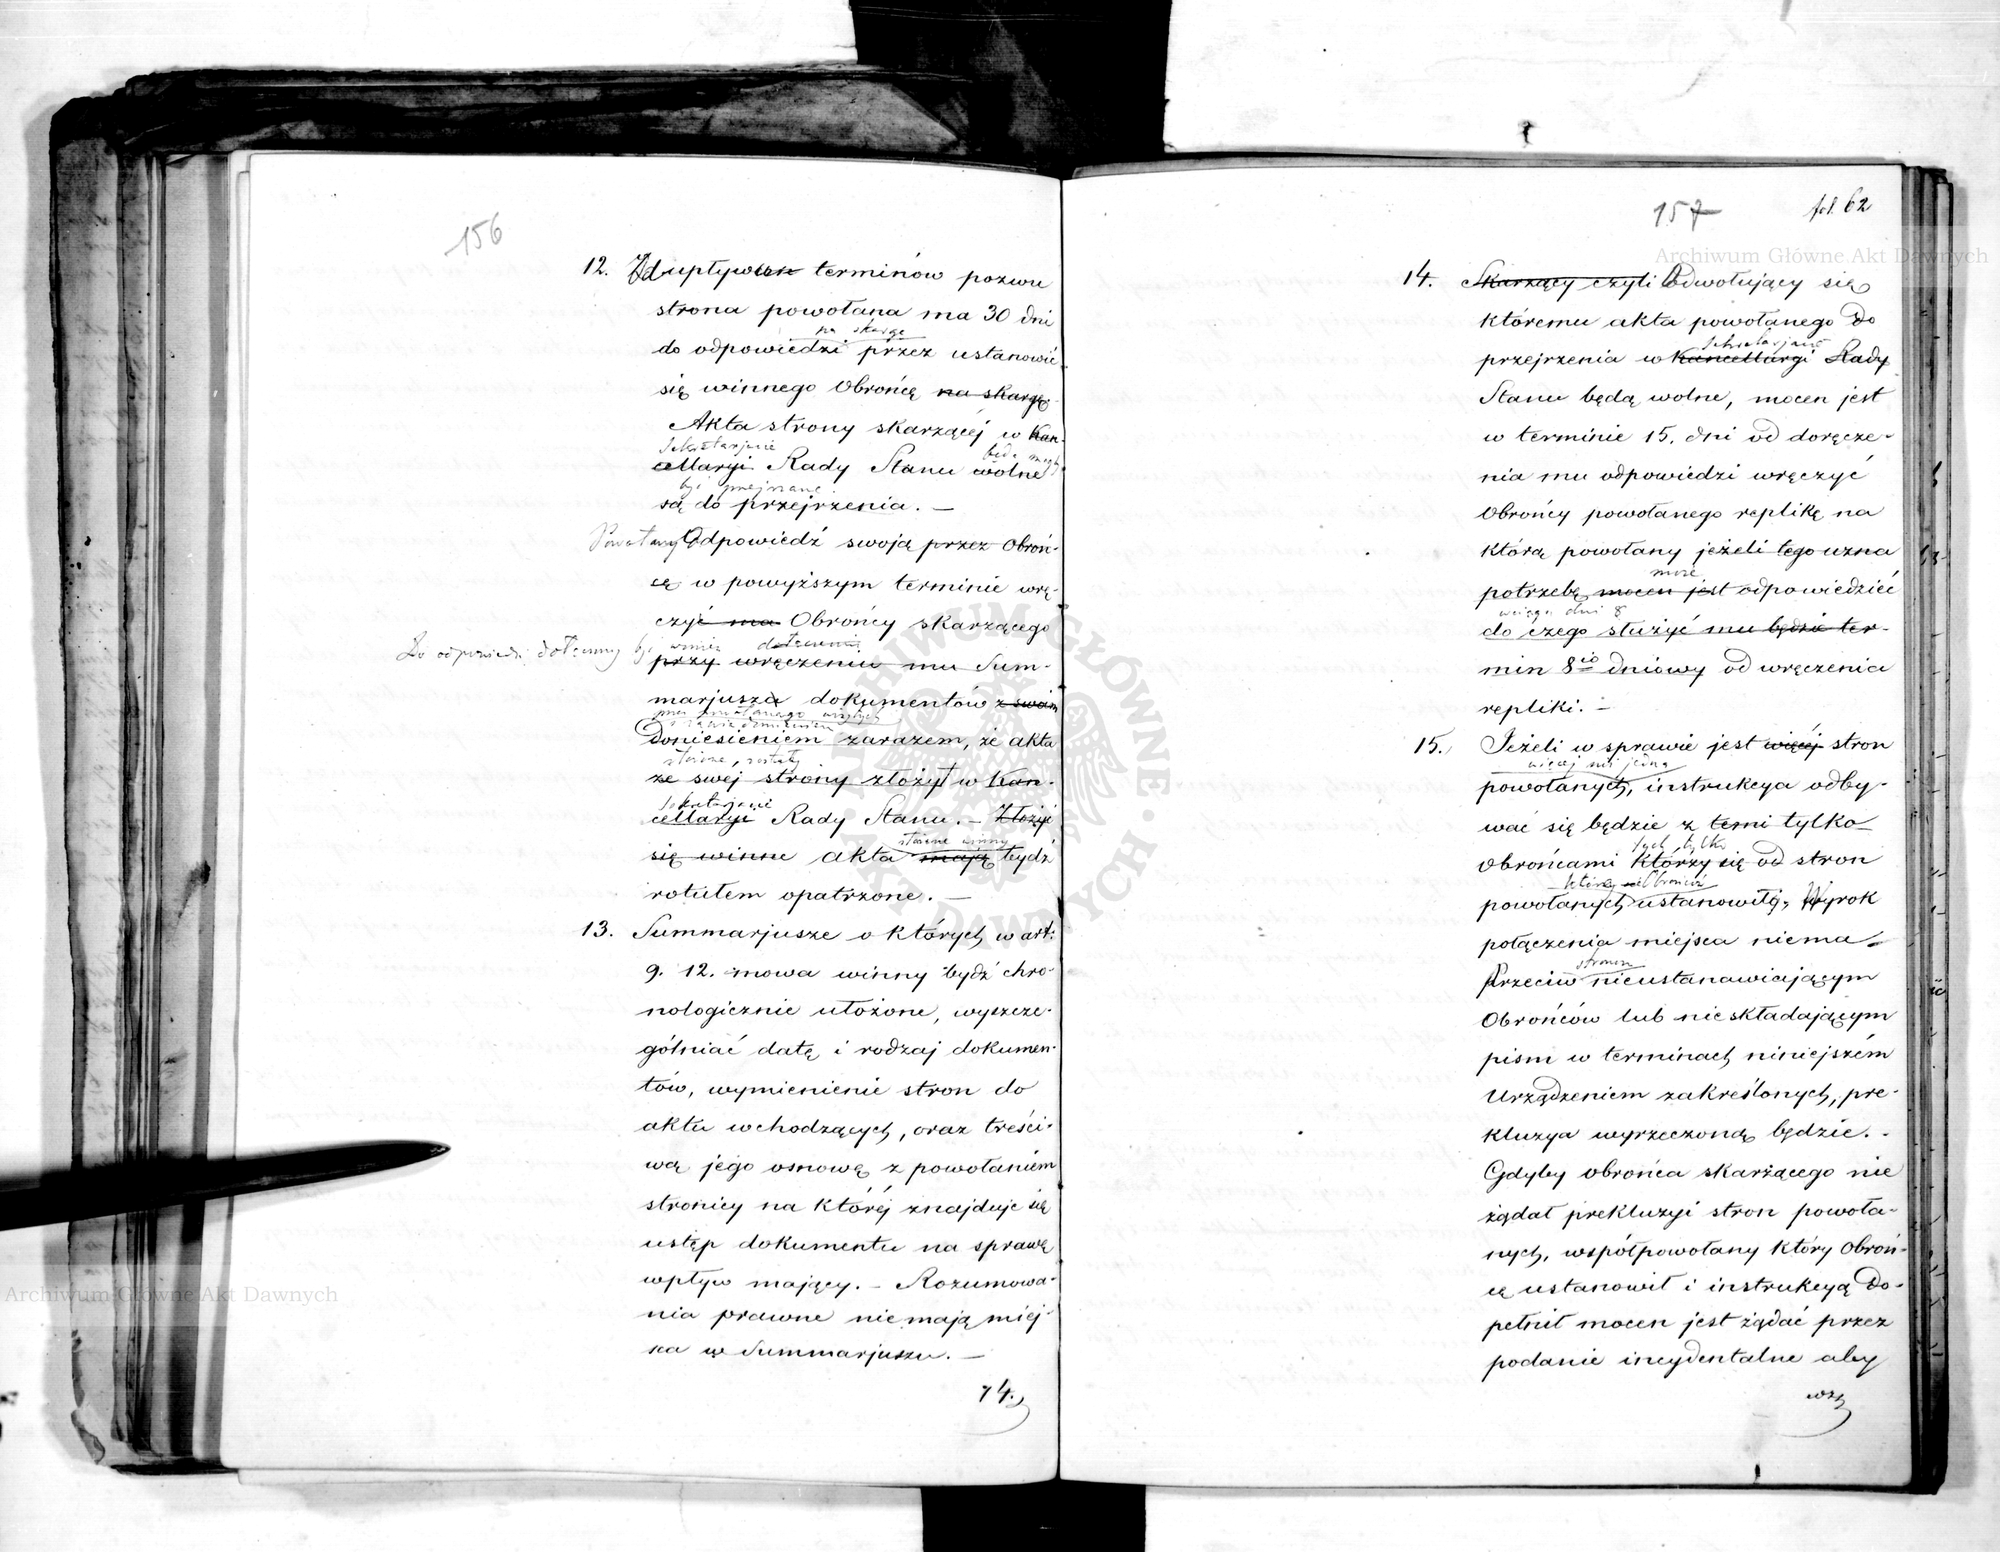 156
12. Od upływu terminów pozwu
strona powołana ma 30 dni
na skargę
do odpowiedzi przez ustanowić
się winnego Obrońcę na skargę.
Akta strony skarżącéj w Kan-
Sekretarjacie
cellaryi Rady Stanu wolne
będą mogły
być przejrzane
są do przejrzenia. —
Powołany Odpowiedź swoją przez Obroń-
cę w powyższym terminie wrę-
czyć ma Obrońcy skarżącego
Do odpowiedzi dołączony być winien
przy wręczeniu mu Sum-
marjusza dokumentów z swoim
Doniesieniem zarazem, że akta
złożone, zostały
ze swej strony złożył w Kan-
Sekretarjacie
cellaryi Rady Stanu. — Złożyć
złożone winny
się winne akta mają bydź
rotułem opatrzone. —
13. Summarjusze o których w art:
9. 12. mowa winny bydź chro-
nologicznie ułożone, wyszcze-
gólniać datę i rodzaj dokumen-
tów, wymienienie stron do
aktu wchodzących, oraz treści-
wą jego osnowę z powołaniem
stronicy na któréj znajduje się
ustęp dokumentu na sprawę
wpływ mający. — Rozumowa-
nia prawne nie mają miej-
sca w Summarjuszu. —
14.
157
fol. 62
14. Skarżący czyli Odwołujący się
któremu akta powołanego do
Sekretarjacie
przejrzenia w Kancellaryi Rady
Stanu będą wolne, mocen jest
w terminie 15. dni od doręcze-
nia mu odpowiedzi wręczyć
Obrońcy powołanego replikę na
którą powołany jeżeli tego uzna
może
potrzebę mocen jest odpowiedzieć
w ciągu dni 8
do czego służyć mu będzie ter-
min 8io dniowy od wręczenia
repliki. —
15. Jeżeli w sprawie jest więcéj stron
więcej niż jedna
powołanych, instrukcya odby-
wać się będzie z temi tylko
tych tylko
Obrońcami którzy się od stron
które Obrońców
powołanych ustanowiłą, Wyrok
połączenia miejsca niema.
stronom
Przeciw nieustanawiającym
Obrońców lub nie składającym
pism w terminach niniejszém
Urządzeniem zakreślonych, pre-
kluzya wyrzeczoną będzie. -
Gdyby obrońca skarżącego nie
żądał prekluzyi stron powoła-
nych, współpowołany który Obroń-
cę ustanowił i instrukcyą do-
pełnił mocen jest żądać przez
podanie incydentalne aby